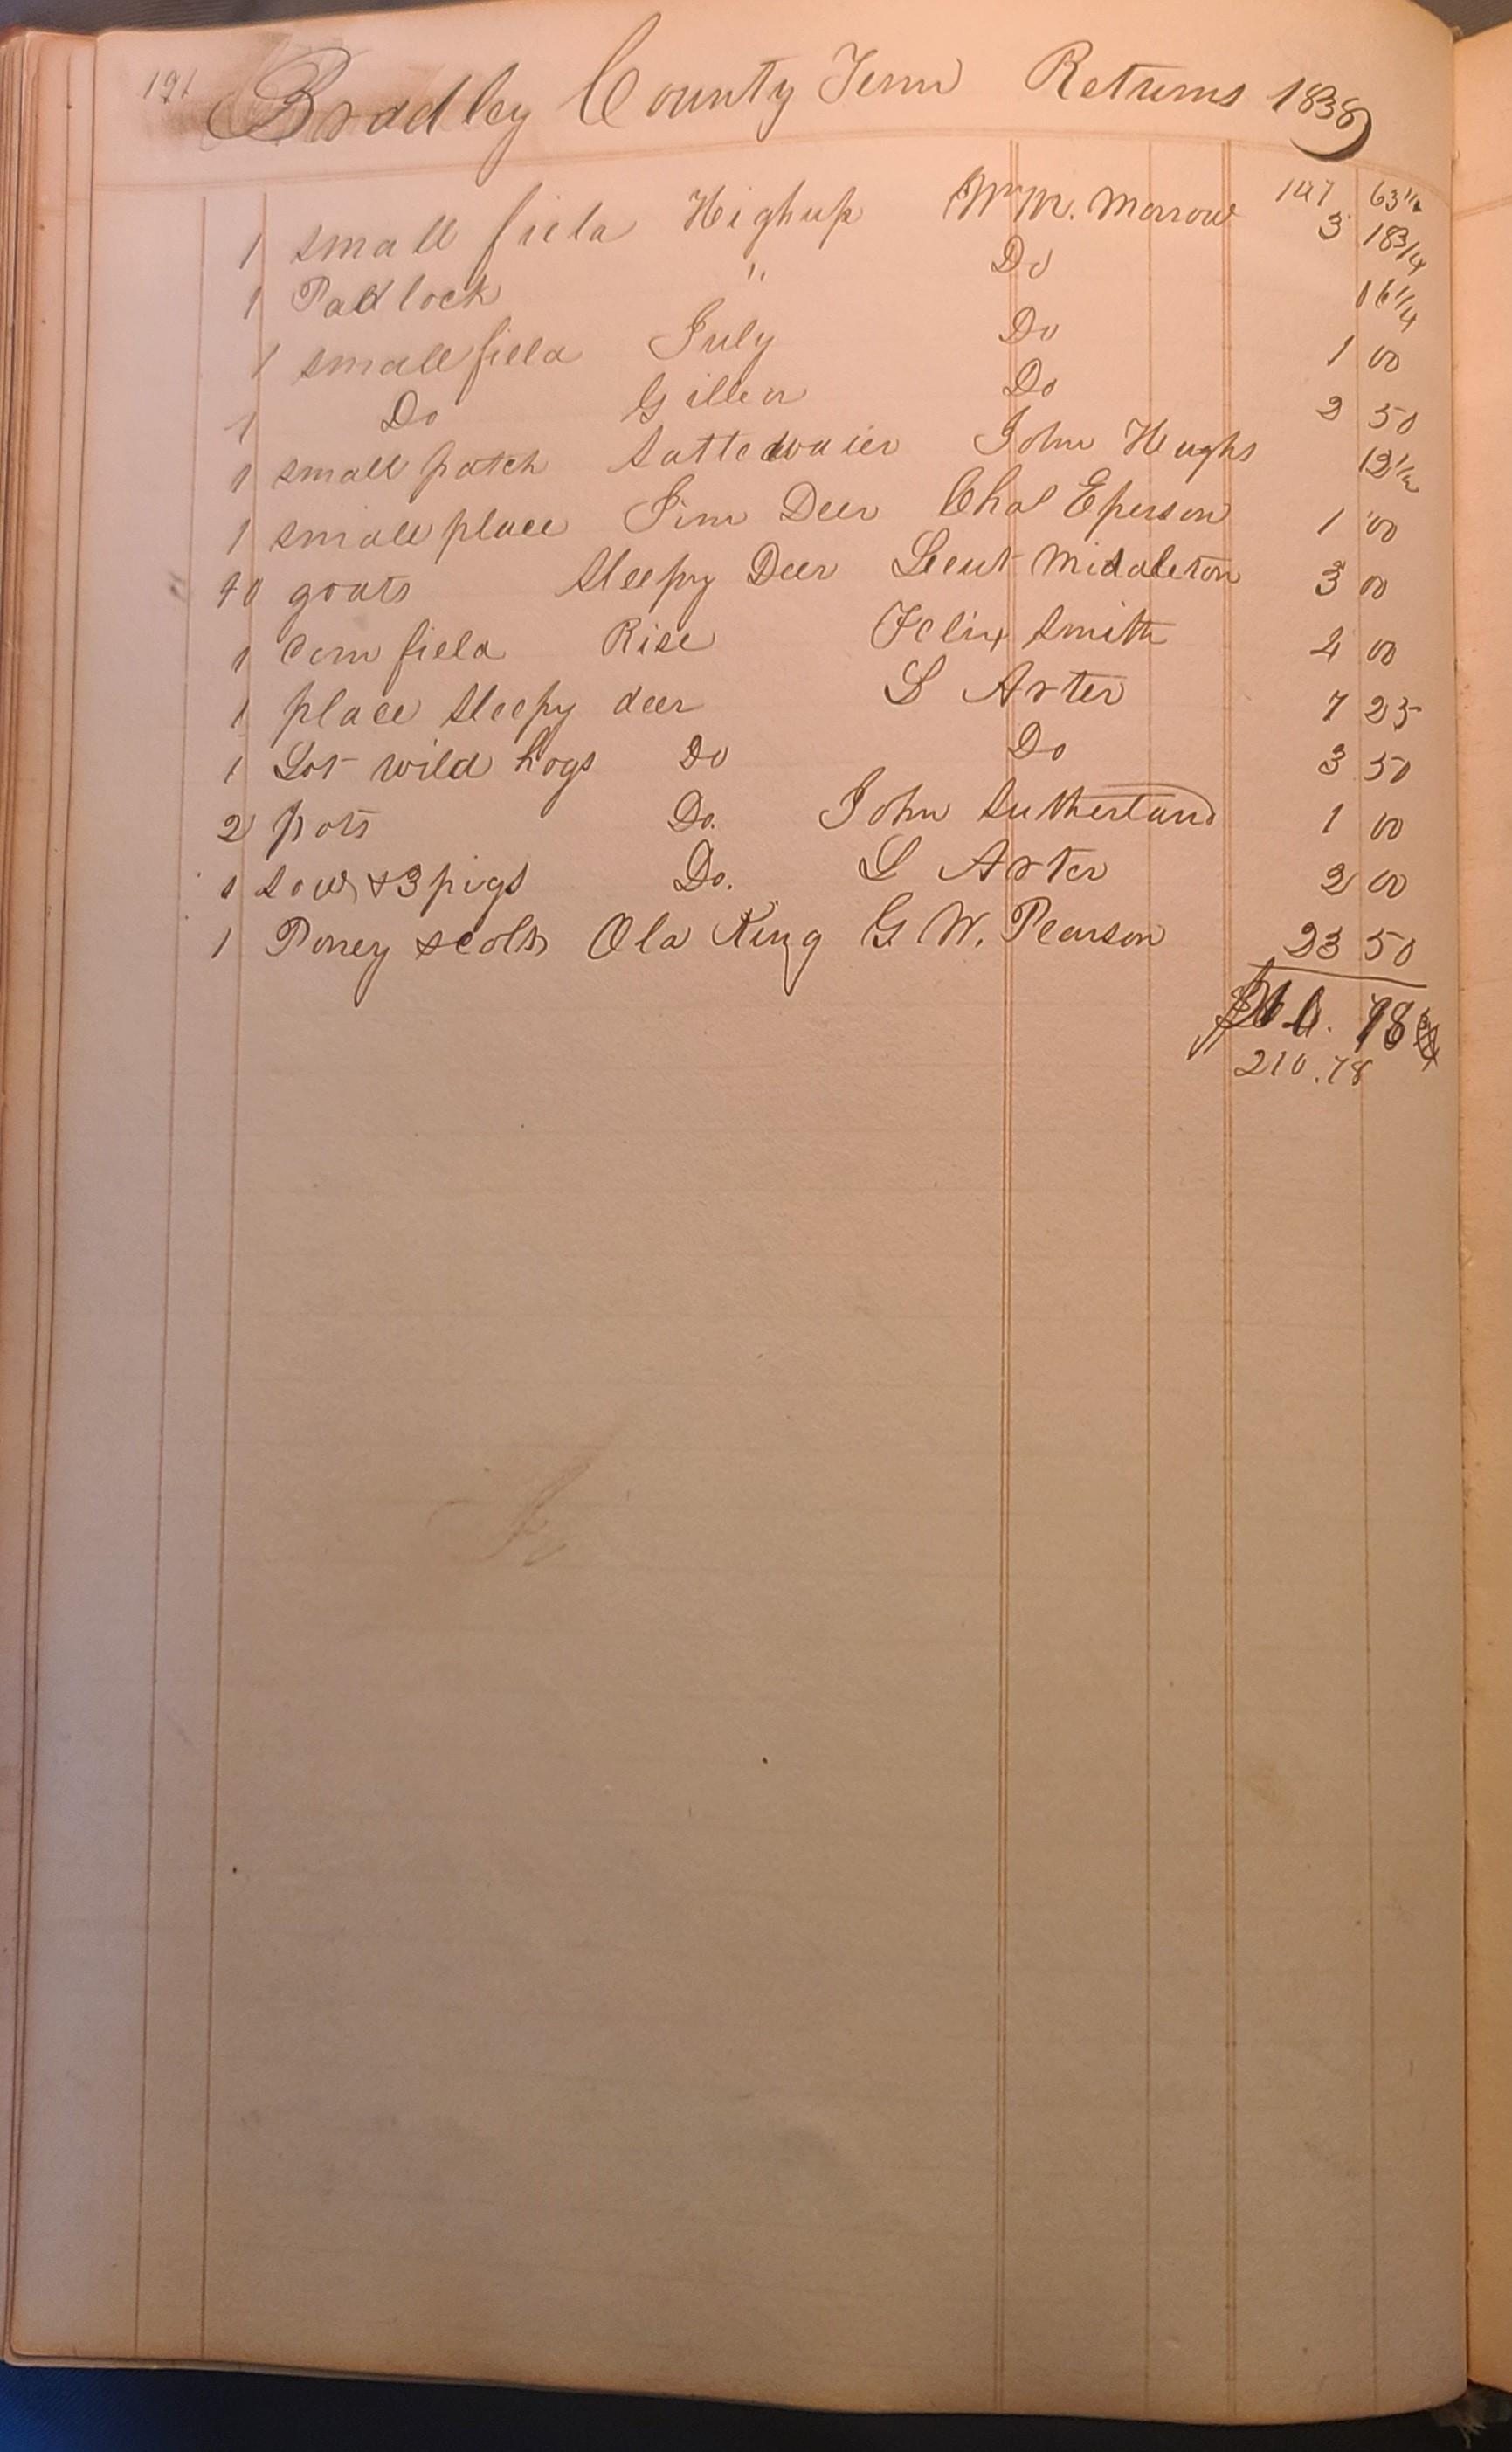 191 Bradley County Tenn Returns 1838
147 63 1/2
1 small field Highup Wm M. Morrow 3 18 3/4
1 Padlock " Do 06 1/4
1 small field July Do 1 00
1 Do Gillen Do 2 50
1 small patch John Hughs 12 1/2
1 small place Jim Deer Chas Eperson 1 00
40 goats Sleepy Deer Lieut Middleton 3 00
1 Corn field Rise Felix Smith 4 00
1 place Sleepy deer L Arter 7 25
1 Lot wild hogs Do Do 3 50
2 pots Do. John Sutherland 1 00
1 Sow & 3 pigs Do. L Arter 2 00
1 Poney & colt Old King G W. Pearson 23 50
98
210.78